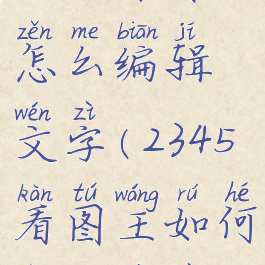 zěn me biān jí
怎么编辑
wén zì
文字(2345
kàn tú wáng rú hé
看图王如何